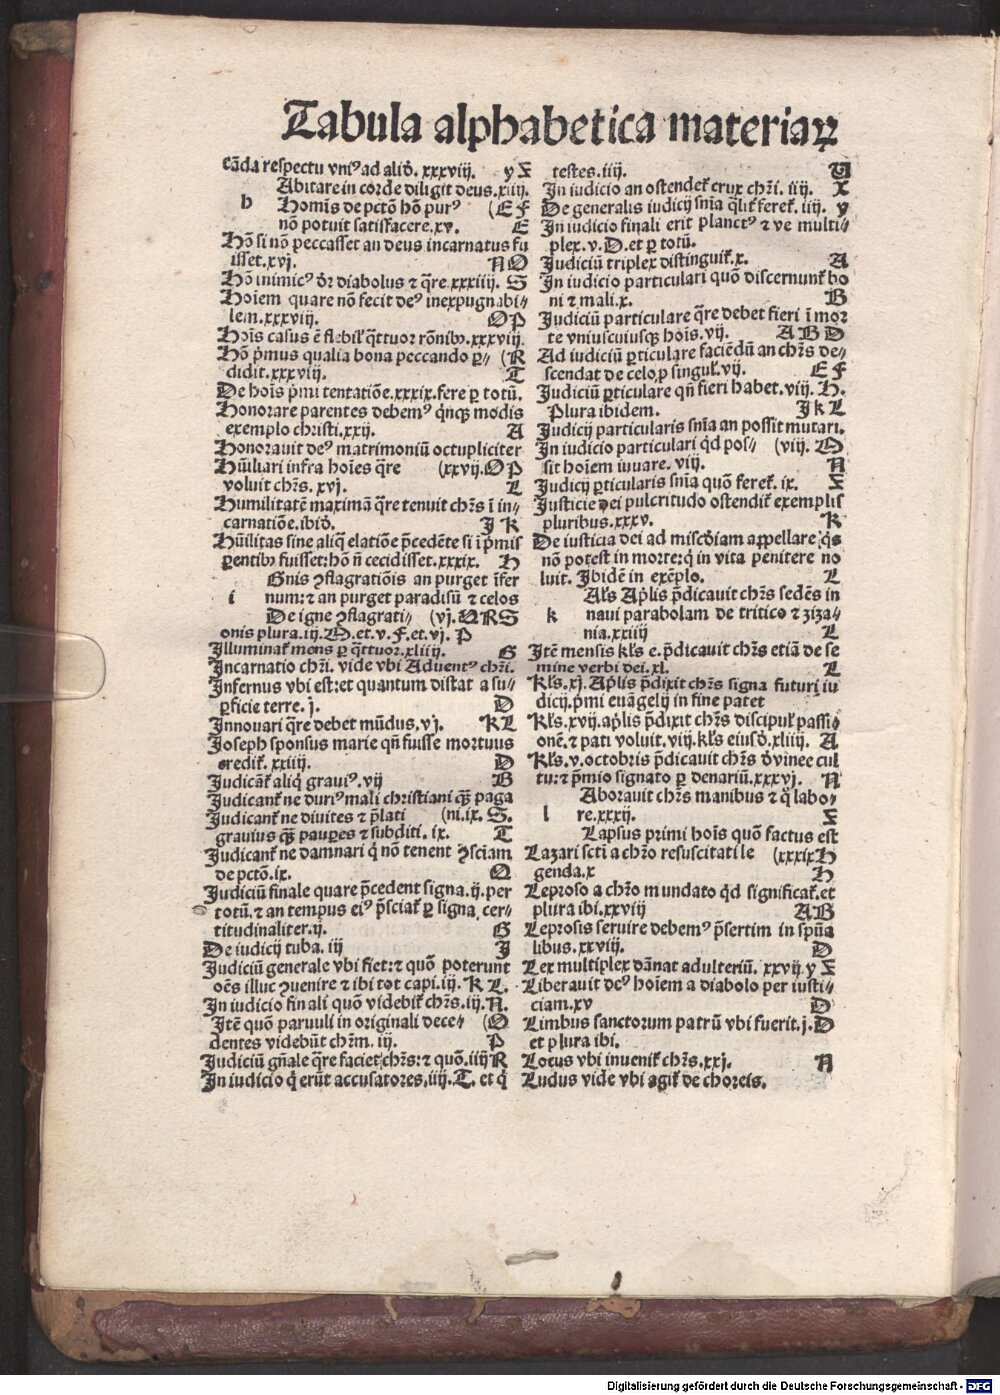 Tabula alphabetica materiaꝝ
cãda respectu vniꝰ ad aliõ. xxxviij. y Z
Abitare in corde diligit deus. xiij.
h Homĩs de pctõ hõ purꝰ (E F
nõ potuit satisfacere. xv. E
Hõ si nõ peccasset an deus incarnatus fu
isset. xvj. N O
Hõ inimicꝰ dr diabolus ⁊ q̃re. xxxiiij. S
Hoĩem quare nõ fecit deꝰ inexpugnabi⸗
lem. xxxviij. O P
Hoĩs casus ẽ flebil' q̃ttuor rõnibꝰ. xxxviij.
Hõ p̃mus qualia bona peccando ꝑ⸗ (R
didit. xxxviij. T
De hoĩs p̃mi tentatiõe. xxxix. fere ꝑ totũ.
Honorare parentes debemꝰ q̃nqꝫ modis
exemplo christi. xxij. A
Honorauit deꝰ matrimoniũ octupliciter
Hũiliari infra hoĩes q̃re (xxvij. O P
voluit chr̃s. xvj. L
Humilitatẽ maximã q̃re tenuit chr̃s ĩ in⸗
carnatiõe. ibiđ. J K
Hũilitas sine aliq̃ elatiõe p̃cedẽte si ĩ p̃mis
ꝑentibꝰ fuisset: hõ ñ cecidisset. xxxix. H
Gnis ꝯflagratiõis an purget ĩfer
i num: ⁊ an purget paradisũ ⁊ celos
De igne ꝯflagrati⸗ (vj. Q R S
onis plura. iij. M. et. v. F. et. vj. P
Illuminat̃ mens ꝑ q̃ttuor. xliiij. G
Incarnatio chr̃i. vide vbi Aduentꝰ chr̃i.
Infernus vbi est: et quantum distat a su⸗
ꝑficie terre. j. D
Innouari q̃re debet mũdus. vj. K L
Joseph sponsus marie qñ fuisse mortuus
credit̃. xxiiij. D
Judicãt̃ aliq̃ grauiꝰ. vij B
Judicant̃ ne duriꝰ mali christiani qꝫ̃ paga
Judicant̃ ne diuites ⁊ p̃lati (ni. ix. S.
grauius qꝫ̃ pauꝑes ⁊ subditi. ix. T
Judicant̃ ne damnari q̃ nõ tenent ꝯsciam
de pctõ. ix. Q
Judiciũ finale quare p̃cedent signa. ij. per
totũ. ⁊ an tempus eiꝰ p̃sciat̃ ꝑ signa cer⸗
titudinaliter. ij. G
De iudicij tuba. iij J
Judiciũ generale vbi fiet: ⁊ quõ poterunt
oẽs illuc ꝯuenire ⁊ ibi tot capi. iij. K L.
In iudicio finali quõ videbit̃ chr̃s. iij. N.
Itẽ quõ paruuli in originali dece⸗ (O
dentes videbũt chr̃m. iij. P
Judiciũ gñale q̃re faciet chr̃s: ⁊ quõ. iiij R
In iudicio q̃ erũt accusatores. iiij. T. et q̃
testes. iiij. U
In iudicio an ostendet̃ crux chr̃i. iiij. X
De generalis iudicij sñia q̃lit̃ feret̃. iiij. y
In iudicio finali erit planctꝰ ⁊ ve multi⸗
plex. v. D. et ꝑ totũ.
Judiciũ triplex distinguit̃. x. A
In iudicio particulari quõ discernunt̃ bo
ni ⁊ mali. x. B
Judiciũ particulare q̃re debet fieri ĩ mor
te vniuscuiusqꝫ hoĩs. vij. A B D
Ad iudiciũ ꝑticulare faciẽdũ an chr̃s de⸗
scendat de celo ꝓ singul'. vij. E F
Judiciũ ꝑticulare qñ fieri habet. viij. H.
Plura ibidem. J k L
Judicij particularis sñia an possit mutari.
In iudicio particulari q̃d pos⸗ (viij. M
sit hoĩem iuuare. viij. N
Judicij ꝑticularis sñia quõ feret̃. ix. Z
Justicie dei pulcritudo ostendit̃ exemplis
pluribus. xxxv. K
De iusticia dei ad misc̃diam appellare q̃s
nõ potest in morte: q̃ in vita penitere no
luit. Ibidẽ in exẽplo. L
Al's Apl̃is p̃dicauit chr̃s sedẽs in
k naui parabolam de tritico ⁊ ziza⸗
nia. xxiiij L
Itẽ mensis kl's e. p̃dicauit chr̃s etiã de se
mine verbi dei. xl. L
Kl's. xj. Apl̃is p̃dixit chr̃s signa futuri iu
dicij. p̃mi euãgelij in fine patet
Kl's. xvij. apl̃is p̃dixit chr̃s discipul' passi⸗
onẽ. ⁊ pati voluit. viij. kl's eiusđ. xliiij. A
Kl's. v. octobris p̃dicauit chr̃s đ vinee cul
tu: ⁊ p̃mio signato ꝑ denariũ. xxxvj. N
Aborauit chr̃s manibus ⁊ q̃ labo⸗
l re. xxxij. Z
Lapsus primi hoĩs quõ factus est
Lazari scti a chr̃o resuscitati le (xxxix H
genda. x H
Leproso a chr̃o mundato q̃d significat̃. et
plura ibi. xxviij A B
Leprosis seruire debemꝰ p̃sertim in spũa
libus. xxviij. D
Lex multiplex dãnat adulteriũ. xxvij. y Z
Liberauit dcꝰ hoĩem a diabolo per iusti⸗
ciam. xv D
Limbus sanctorum patrũ vbi fuerit. j. D
et plura ibi.
Locus vbi inuenit̃ chr̃s. xxj. N
Ludus vide vbi agit̃ de choreis.
Digitalisierung gefördert durch die Deutsche Forschungsgemeinschaft - DFG